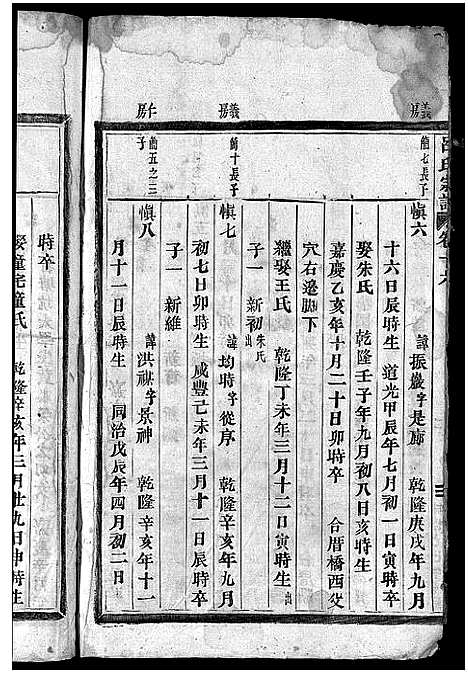 呂氏宗譜 卷十六
義房
愼七長子
愼六 諱振嚴字是廊 乾隆庚戌年九月
十六日辰時生 道光甲辰年七月初一日寅時卒
娶朱氏 乾隆壬子年九月初八日亥時生
嘉慶乙亥年十月二十日卯時卒 合厝橋西
穴右邊脚下
繼娶王氏 乾隆丁未年三月十二日寅時生
子一 新初 朱氏出
義房
師十長子
愼七 諱均時字從序 乾隆辛亥年九月
初七日卯時生 咸豐己未年三月十一日辰時卒
子一 新維
仁房
五之三子
愼八 諱洪祺字景神 乾隆辛亥年十一
月十一日辰時生 同治戊辰年四月初二日
時卒
娶童宅童氏 乾隆辛亥年三月廿九日申時生